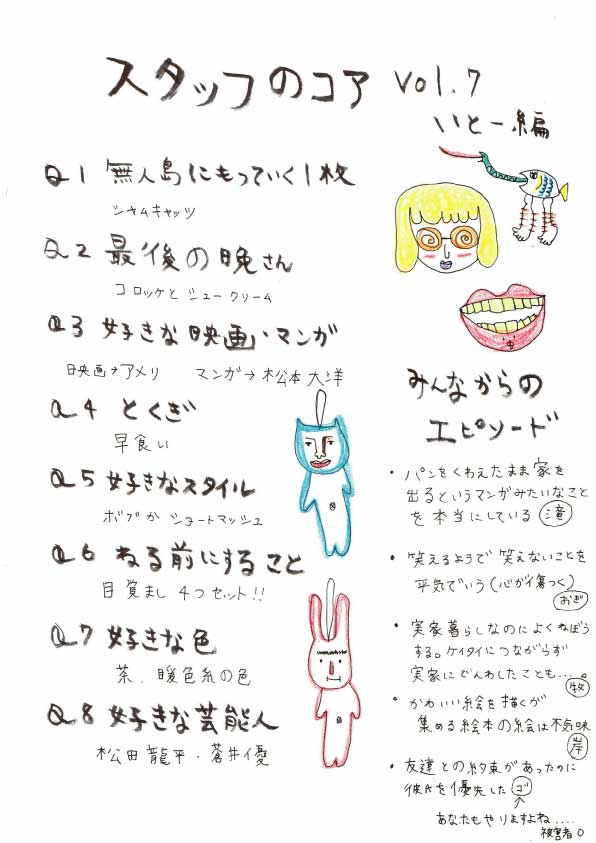 スタッフのコア vol.7
いとー編
Q1 無人島にもっていく1枚
シャムキャッツ
Q2 最後の晩さん
コロッケとシュークリーム
Q3 好きな映画・マンガ
映画→アメリ マンガ→松本大洋
Q4 とくぎ
早食い
Q5 好きなスタイル
ボブか ショートマッシュ
Q6 ねる前にすること
目覚まし 4つセット!!
Q7 好きな色
茶、暖色系の色
Q8 好きな芸能人
松田龍平・蒼井優
みんなからの
エピソード
・パンをくわえたまま家を
出るというマンガみたいなこと
を本当にしている 滝
・笑えるようで笑えないことを
平気でいう(心が傷つく)
おぎ
・実家暮らしなのによくねぼう
する。ケイタイにつながらず
実家にでんわしたことも....。
牧
・かわいい絵を描くが
集める絵本の絵は不気味
岸
・友達との約束があったのに
彼氏を優先した ゴ
↑
あなたもやりますよね....
被害者O